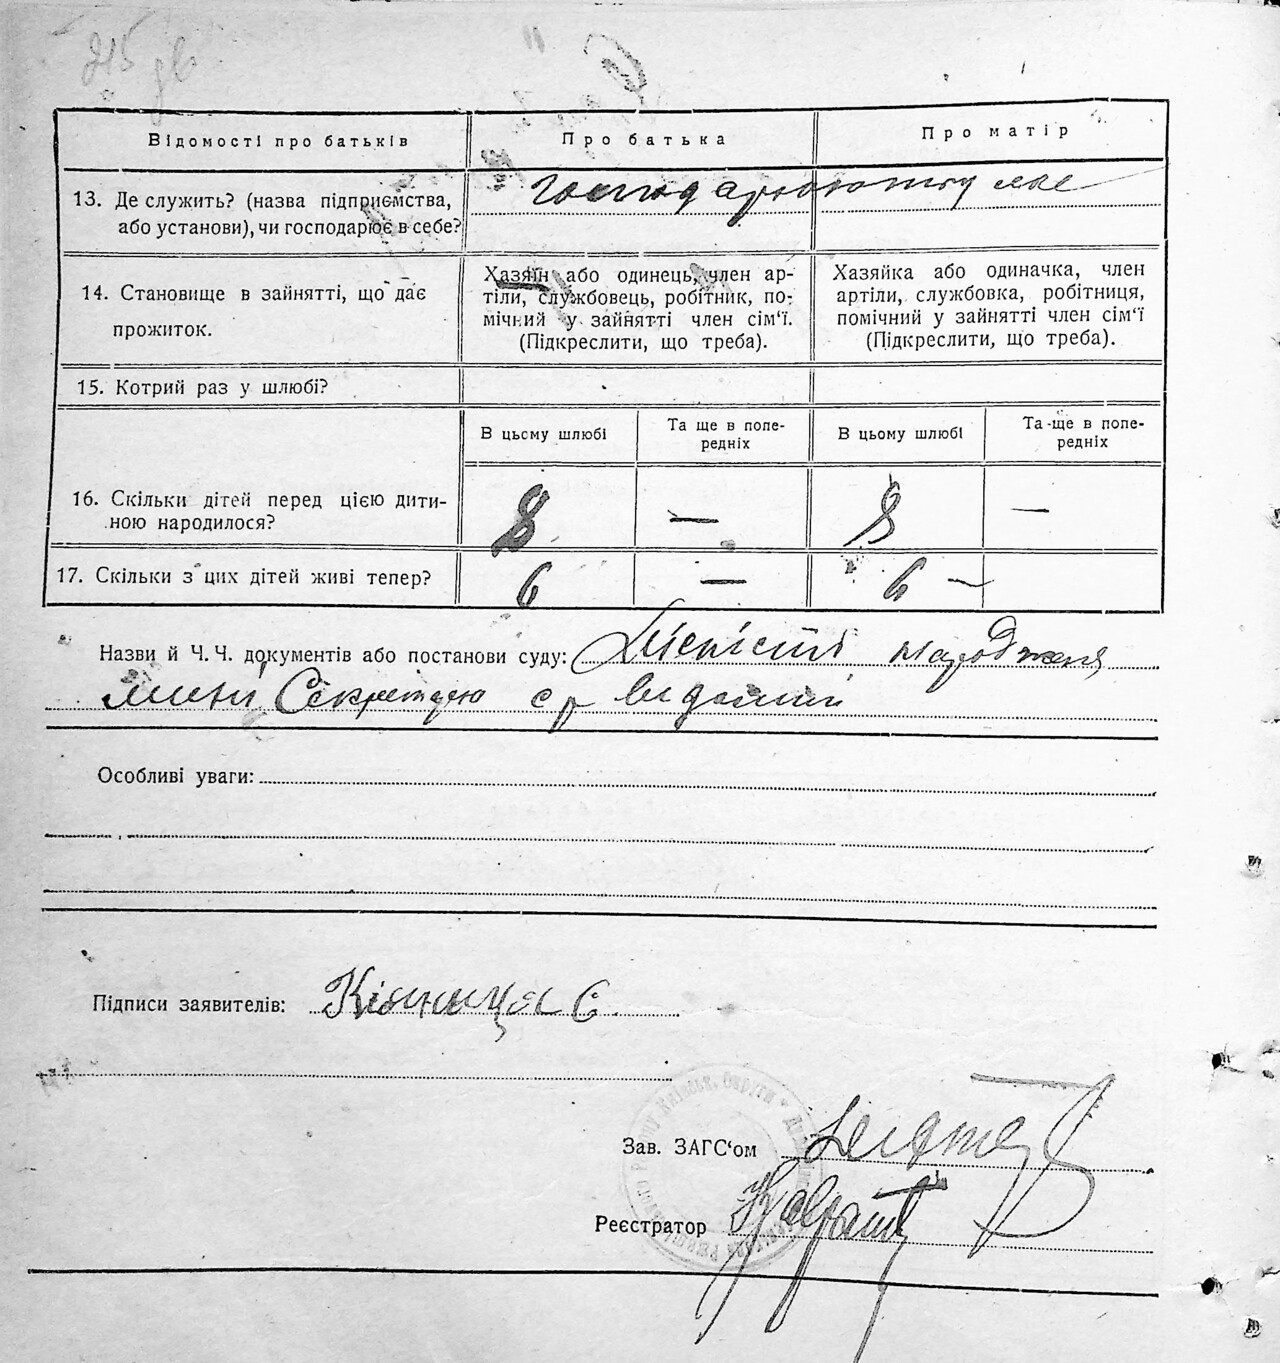 215 зв
Відомості про батьків
Про батька
Про матір
13. Де служить? (назва підприємства,
або установи), чи господарює в себе?
14. Становище в зайнятті, що дає
прожиток.
Хазяїн або одинець, член ар-
тіли, службовець, робітник, по-
мічний у зайнятті член сім‘ї.
(Підкреслити, що треба).
Хазяйка або одиначка, член
артіли, службовка, робітниця,
помічний у зайнятті член сім‘ї
(Підкреслити, що треба).
15. Котрий раз у шлюбі?
В цьому шлюбі
Та ще в попе-
редніх
В цьому шлюбі
Та ще в попе-
редніх
16. Скільки дітей перед цією дити-
ною народилося?
8 — 8 —
17. Скільки з цих дітей живі тепер?
6 — 6 —
Назви й Ч. Ч. документів або постанови суду: народженя
Секретарю с/р виданий
Особливі уваги:
Підписи заявителів: Кізниця Є
Зав. ЗАГС‘ом
Реєстратор